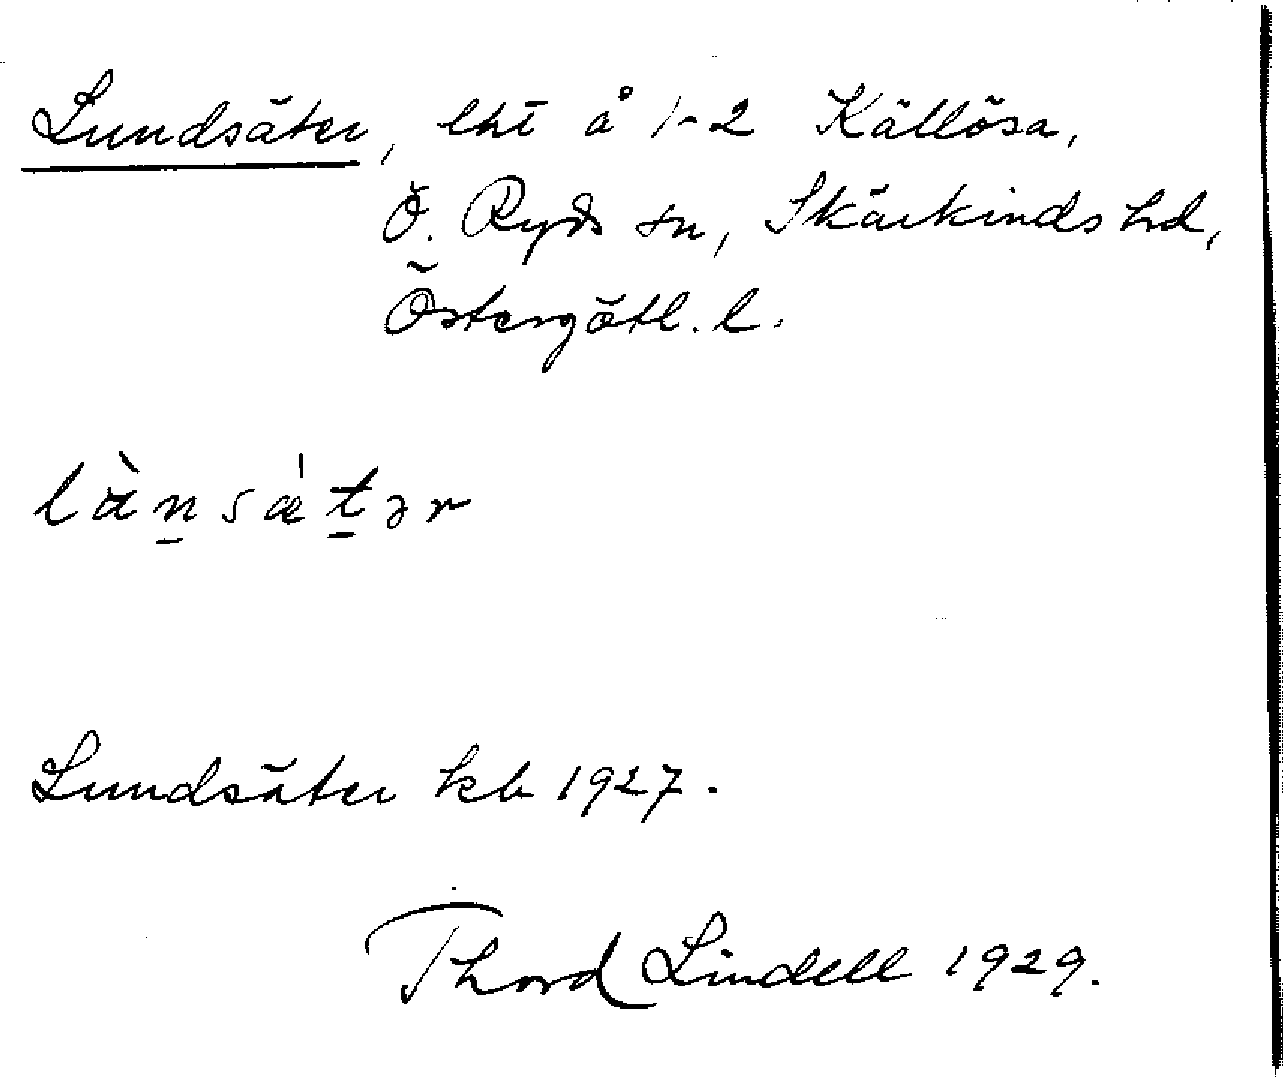 Lundsäter, lht å 1-2 Källösa,
Ö. Ryds sn, Skärkinds hd,
Östergötl. l.
Lundsäter kb 1927.
Thord Lindell 1929.